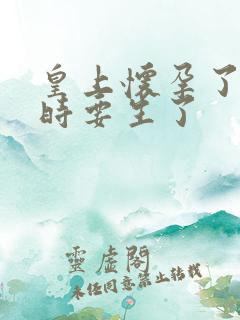 皇上懷孕了
時要生了
靈虛閣
未經同意禁止轉載